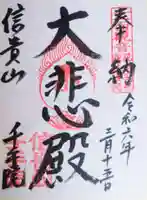 奉納
令和六年
二月十五日
大悲殿
信貴山
千手院